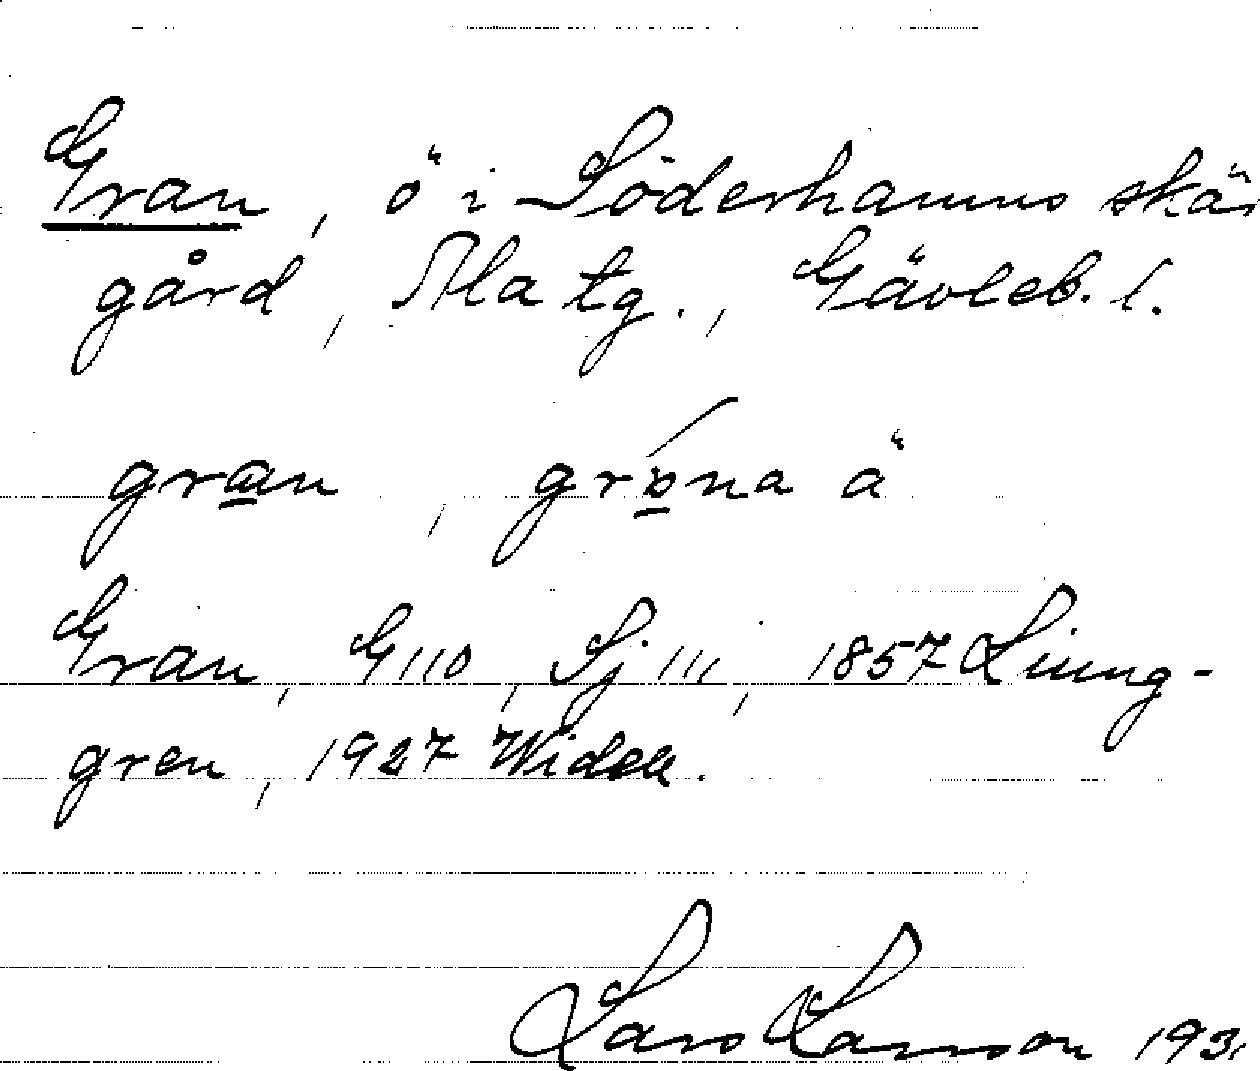 Gran, ö i Söderhamns skär
gård, Ala tg., Gävleb. l.
gran, gröna ä
Gran, G 110, Sj 111, 1857 Ljung-
gren, 1927 Widen.
Lars Larsson 193